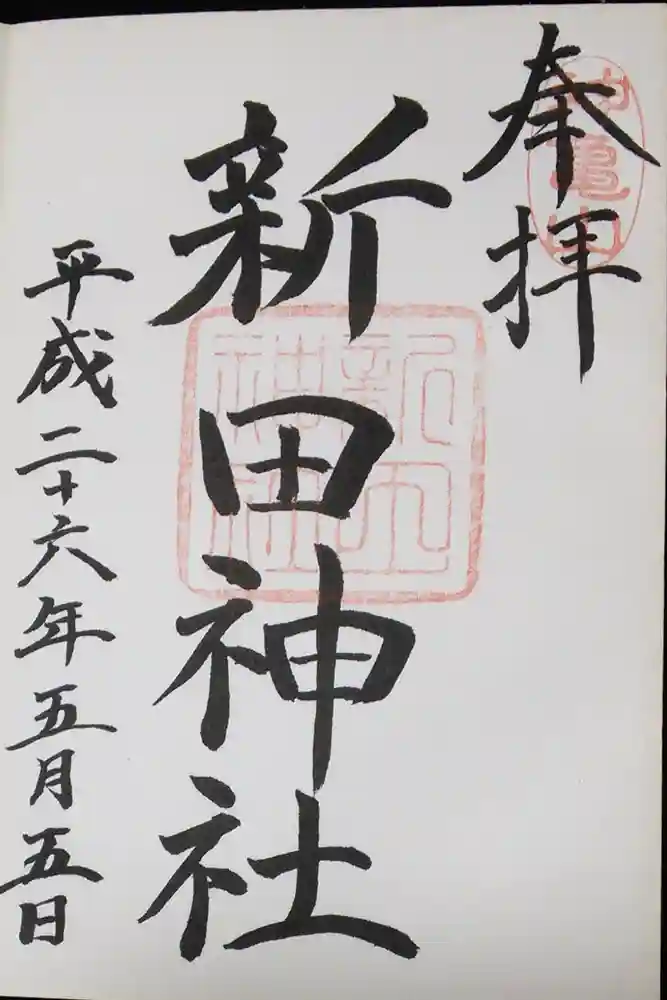 奉拝
神亀山
新田神社
新田神社
平成二十六年五月五日